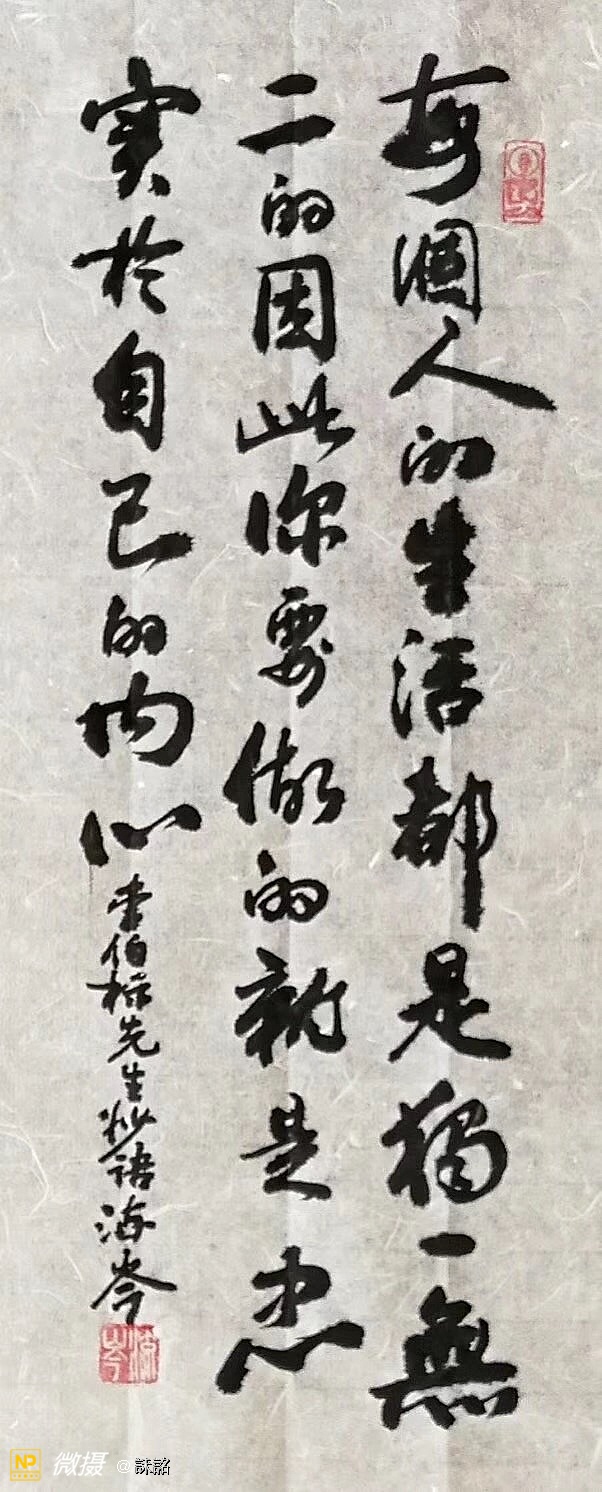 每個人的生活都是獨一無
二的因此你要做的就是忠
實於自己的内心
李伯标先生妙語海岑
海岑
NP 微摄 @誄詺